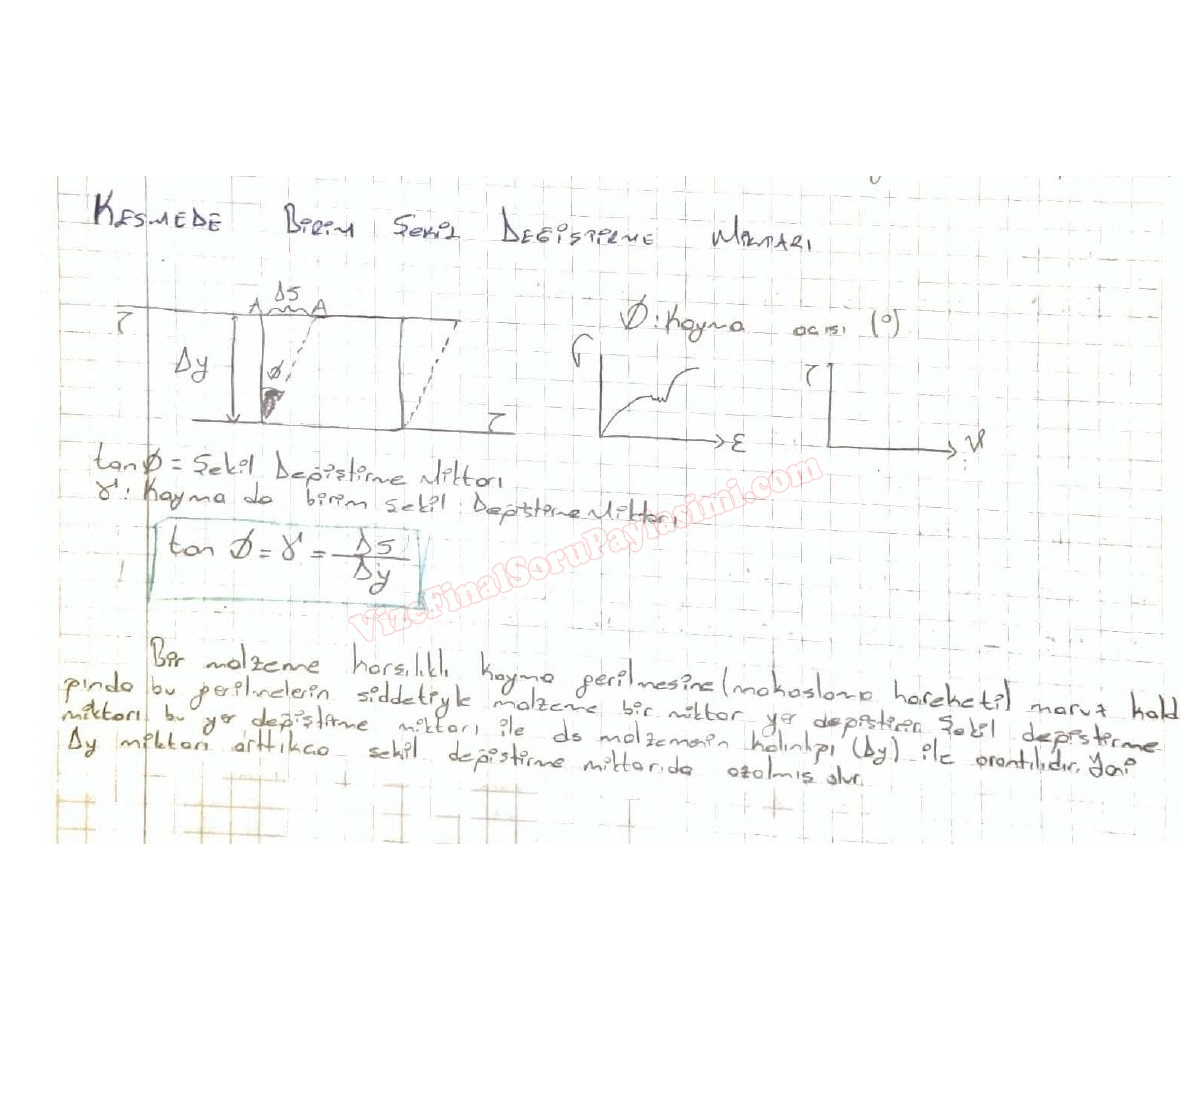 KESMEDE BİRİM ŞEKİL DEĞİŞTİRME MİKTARI
ΔS
A A
τ
Δy
Ø
τ
Ø: Kayma açısı (°)
σ
ε
τ
γ
tan Ø = Şekil Değiştirme Miktarı
γ: Kayma da birim şekil Değiştirme Miktarı
tan Ø = γ = ΔS / Δy
VizeFinalSoruPaylasimi.com
Bir malzeme karşılıklı kayma gerilmesine (makaslama hareketi) maruz kaldı
ğında bu gerilmelerin şiddetiyle malzeme bir miktar yer değiştirir. Şekil değiştirme
miktarı bu yer değiştirme miktarı ile ds malzemenin kalınlığı (Δy) ile orantılıdır. Yani
Δy miktarı arttıkca şekil değiştirme miktarıda azalmış olur.